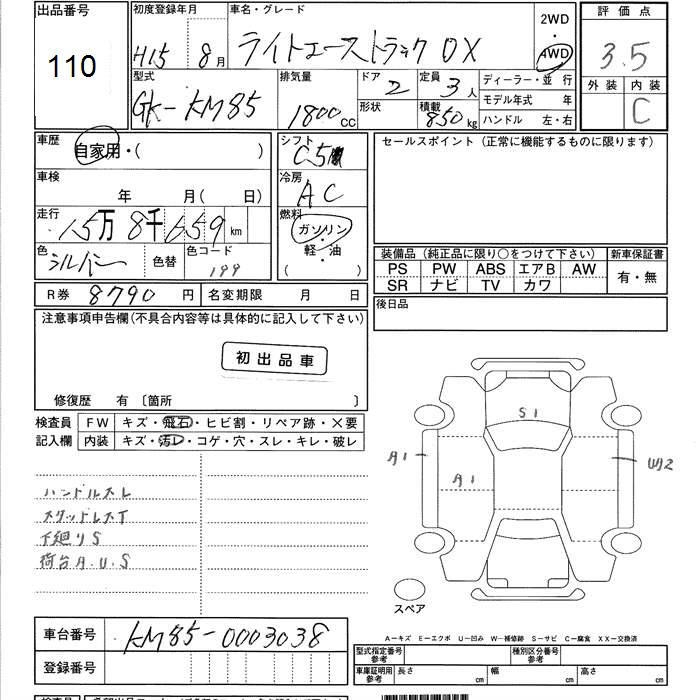 出品番号 初度登録年月 車名・グレード 2WD 評価点
110 H15 8月 ライトエーストラック DX 4WD 3.5
型式 排気量 ドア 定員 ディーラー・並行 外装 内装
GK-KM85 1800cc 2 3人 モデル年式 年 C
形状 積載 850kg ハンドル 左・右
車歴 自家用・( ) シフト C5 セールスポイント (正常に機能するものに限ります)
車検 年 月(日) 冷房 AC
走行 15万8千659km 燃料 ガソリン・軽・油 ( )
色 シルバー 色替 色コード 199
装備品 (純正品に限り○をつけて下さい) 新車保証書
PS PW ABS エアB AW 有・無
SR ナビ TV カワ
R券 8790円 名変期限 月 日 後日品
注意事項申告欄(不具合内容等は具体的に記入して下さい)
初出品車
修復歴 有 〔箇所 〕
検査員 FW キズ・飛石・ヒビ割・リペア跡・×要
記入欄 内装 キズ・汚レ・コゲ・穴・スレ・キレ・破レ
S1
A1
A1
U2
ハンドルスレ
スタッドレスT
下廻りS
荷台A.U.S
スペア
A-キズ E-エクボ U-凹み W-補修跡 S-サビ C-腐食 XX-交換済
車台番号 KM85-0003038
型式指定番号 参考 種別区分番号 参考
登録番号 車庫証明用 参考 長さ cm 幅 cm 高さ cm